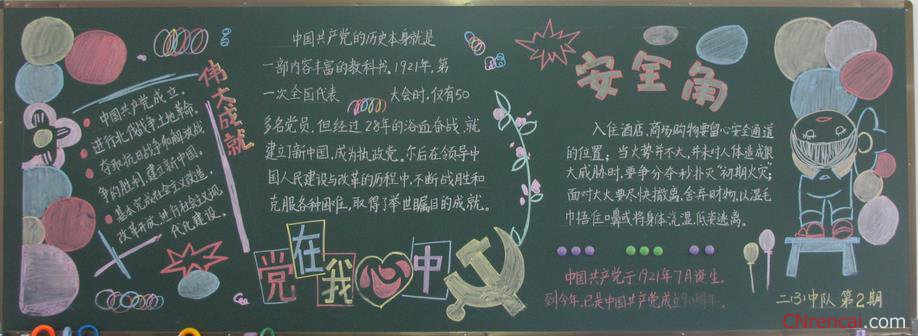 伟大成就
中国共产党成立,
进行北伐战争土地革命,
夺取抗日战争和解放战
争的胜利,建立新中国,
基本完成社会主义改造,
改革开放,进行社会主义现
代化建设。
中国共产党的历史本身就是
一部内容丰富的教科书。1921年,第
一次全国代表大会时,仅有50
多名党员,但经过28年的浴血奋战,就
建立了新中国,成为执政党。尔后在领导中
国人民建设与改革的历程中,不断战胜和
克服各种困难,取得了举世瞩目的成就。
党在我心中
安全角
入住酒店、商场购物要留心安全通道
的位置;当火势并不大,并未对人体造成很
大威胁时,要争分夺秒扑灭“初期火灾”;
面对大火要尽快撤离,舍弃财物,以湿毛
巾捂住口鼻或将身体浇湿低姿逃离。
中国共产党于1921年7月诞生,
到今年,已是中国共产党成立90周年。
二(3)中队 第2期
CNrencai.com